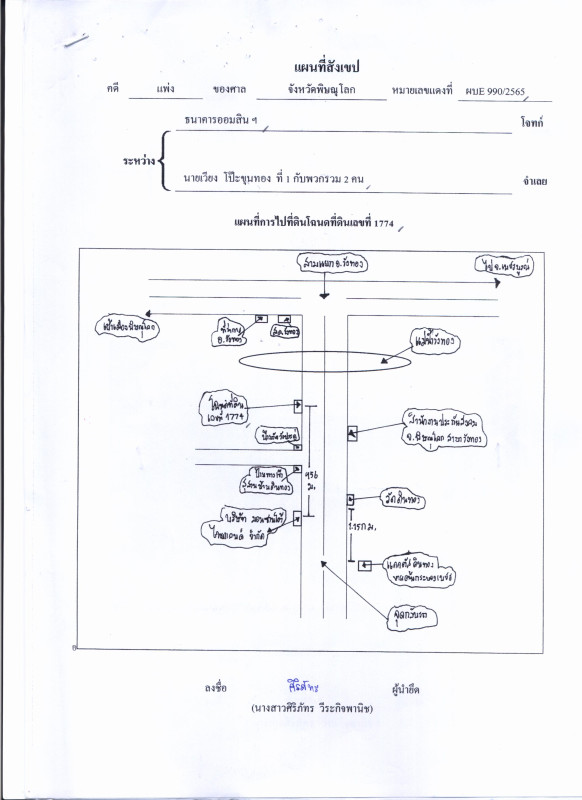 แผนที่สังเขป
คดี แพ่ง ของศาล จังหวัดพิษณุโลก หมายเลขแดงที่ ผบE 990/2565
ธนาคารออมสิน ฯ โจทก์
ระหว่าง
นายเวียง โป๊ะขุนทอง ที่ 1 กับพวกรวม 2 คน จำเลย
แผนที่การไปที่ดินโฉนดที่ดินเลขที่ 1774
สามแยก อ.วังทอง
ไป จ.เพชรบูรณ์
เข้าเมืองพิษณุโลก
อ.วังทอง
แม่น้ำวังทอง
โฉนดที่ดิน
เลขที่ 1774
สำนักงานประกันสังคม
จ.พิษณุโลก สาขาวังทอง
936
ม.
วัดดินทอง
บริษัท
ไทยแลนด์ จำกัด
ม.
จุดกลับรถ
ลงชื่อ ศิริภัทร ผู้นำยึด
(นางสาวศิริภัทร วีระกิจพานิช)